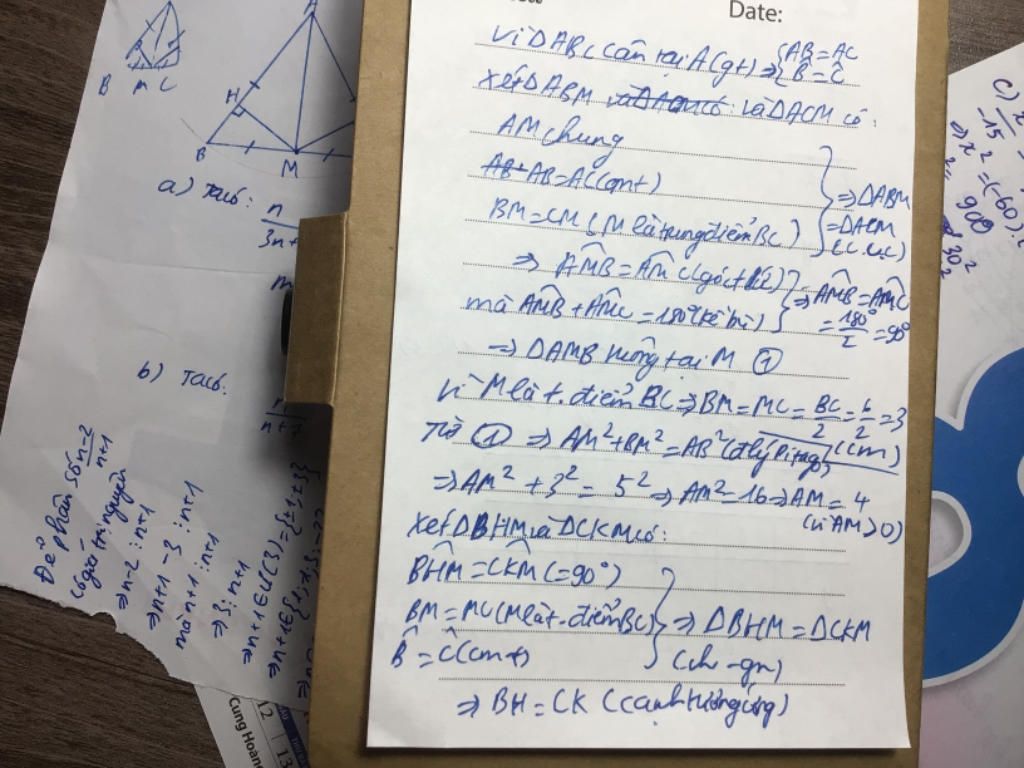 Date:
Vì ΔABC cân tại A(gt) ⇒ {AB = AC
B̂ = Ĉ
Xét ΔABM và ΔACM có:
AM chung
AB = AC(cmt)
BM = CM (M là trung điểm BC)
⇒ ΔABM
= ΔACM
(c.c.c)
⇒ AM̂B = AM̂C (góc t/ứ)
mà AM̂B + AM̂C = 180°(kề bù)
⇒ AM̂B = AM̂C
= 180°/2 = 90°
⇒ ΔAMB vuông tại M ①
Vì M là t.điểm BC ⇒ BM = MC = BC/2 = 6/2 = 3
(cm)
Từ ① ⇒ AM² + BM² = AB² (đlý Pitago)
⇒ AM² + 3² = 5² ⇒ AM² = 16 ⇒ AM = 4
(vì AM > 0)
Xét ΔBHM và ΔCKM có:
BĤM = CK̂M (= 90°)
BM = MC (M là t.điểm BC)
B̂ = Ĉ (cmt)
⇒ ΔBHM = ΔCKM
(ch - gn)
⇒ BH = CK (cạnh tương ứng)
B M C
H
B
M
a) Ta có:
n
3n+
b) Ta có:
n+7
Để phân số n-2/n+1
có giá trị nguyên
⇒ n-2 ⋮ n+1
⇒ n+1 - 3 ⋮ n+1
mà n+1 ⋮ n+1
⇒ 3 ⋮ n+1
⇒ n+1 ∈ Ư(3) = {±1; ±3}
c) x
15
⇒ x² = (-60).(
900
30²
Cung Hoàng
12
13